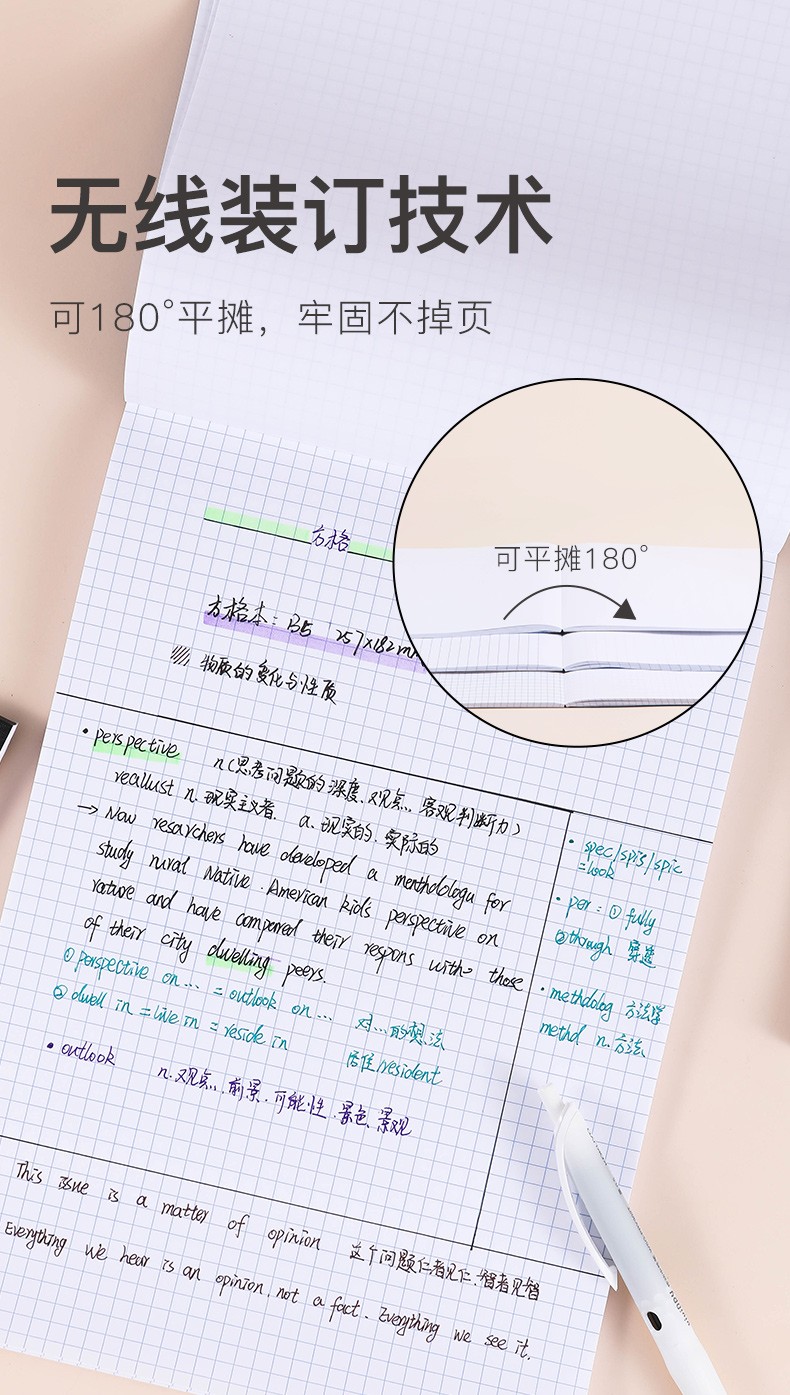 无线装订技术
可180°平摊，牢固不掉页
可平摊180°
方格
方格本：B5 257×182mm
物质的变化与性质
• perspective n（思考问题的深度、观点、客观判断力）
reallust n. 现实主义者. a. 现实的. 实际的
→ Now resarchers have developed a menthdologu for
study rural Native. American kids perspective on
rature and have compared their respons with those
of their city dwelling peers.
① perspective on... = outlook on... 对...的想法
② dwell in = live in = reside in 居住/resident
• outlook n. 观点、前景. 可能性. 景色、景观
• spec/spis/spic
=look
• per: ① fully
② through 穿透
• methdolog 方法学
methd n. 方法
This issue is a matter of opinion 这个问题仁者见仁.智者见智
Everything we hear is an opinion, not a fact. Everything we see it.